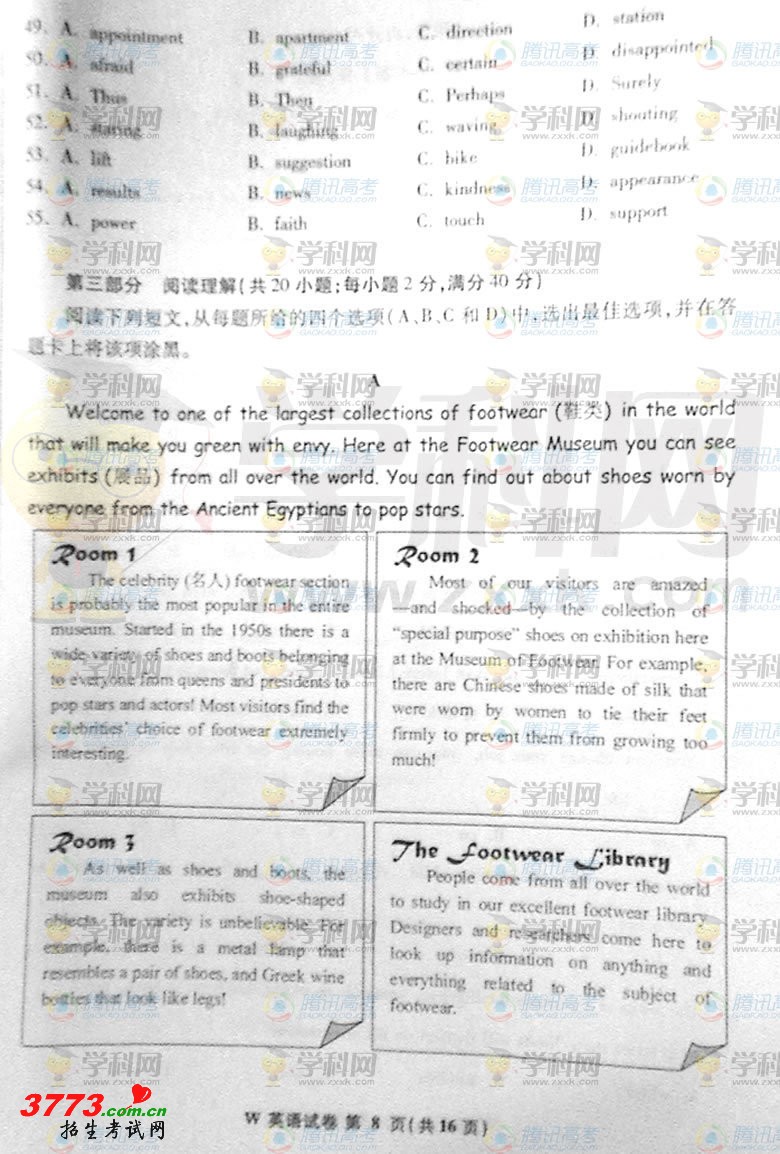 49. A. appointment B. apartment C. direction D. station
50. A. afraid B. grateful C. certain D. disappointed
51. A. Thus B. Then C. Perhaps D. Surely
52. A. staring B. laughing C. waving D. shouting
53. A. lift B. suggestion C. hike D. guidebook
54. A. results B. news C. kindness D. appearance
55. A. power B. faith C. touch D. support
第三部分 阅读理解(共20小题;每小题2分,满分40分)
阅读下列短文,从每题所给的四个选项(A、B、C和D)中,选出最佳选项,并在答
题卡上将该项涂黑。
A
Welcome to one of the largest collections of footwear (鞋类) in the world
that will make you green with envy. Here at the Footwear Museum you can see
exhibits (展品) from all over the world. You can find out about shoes worn by
everyone from the Ancient Egyptians to pop stars.
Room 1
The celebrity (名人) footwear section
is probably the most popular in the entire
museum. Started in the 1950s there is a
wide variety of shoes and boots belonging
to everyone from queens and presidents to
pop stars and actors! Most visitors find the
celebrities' choice of footwear extremely
interesting.
Room 2
Most of our visitors are amazed
—and shocked—by the collection of
“special purpose” shoes on exhibition here
at the Museum of Footwear. For example,
there are Chinese shoes made of silk that
were worn by women to tie their feet
firmly to prevent them from growing too
much!
Room 3
As well as shoes and boots, the
museum also exhibits shoe-shaped
objects. The variety is unbelievable. For
example, there is a metal lamp that
resembles a pair of shoes, and Greek wine
bottles that look like legs!
The Footwear Library
People come from all over the world
to study in our excellent footwear library.
Designers and researchers come here to
look up information on anything and
everything related to the subject of
footwear.
W 英语试卷 第 8 页(共16页)
3773.com.cn
招生考试网
学科网
www.zxxk.com
腾讯高考
GAOKAO.QQ.COM